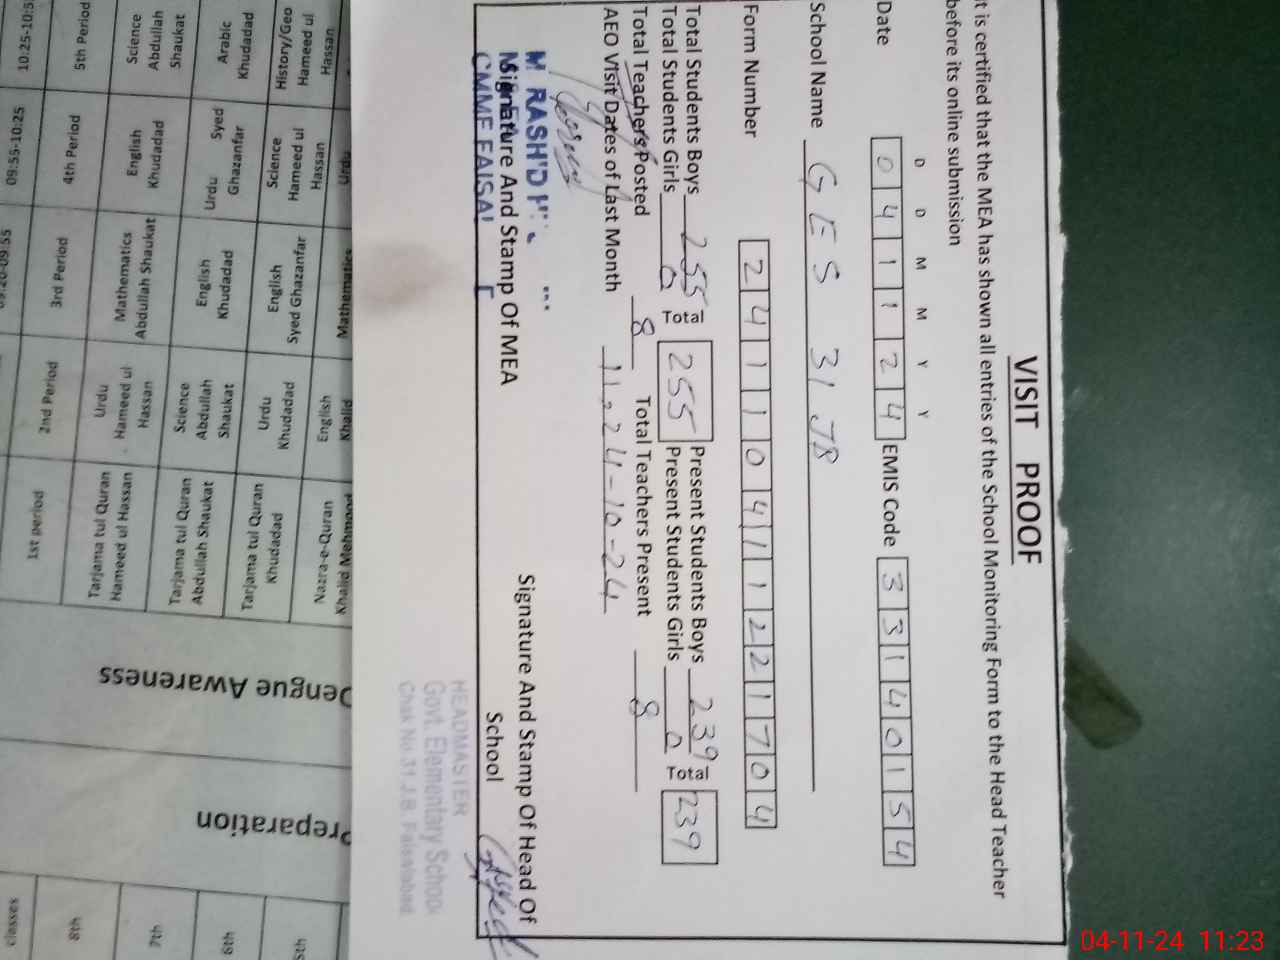 VISIT PROOF
It is certified that the MEA has shown all entries of the School Monitoring Form to the Head Teacher
before its online submission
D D M M Y Y
Date 0 4 1 1 2 4 EMIS Code 3 3 1 4 0 1 5 4
School Name GES 31 JB
Form Number 2 4 1 1 0 4 1 1 2 2 1 7 0 4
Total Students Boys 255 Total 255 Present Students Boys 239 Total 239
Total Students Girls 0 Present Students Girls 0
Total Teachers Posted 8 Total Teachers Present 8
AEO Visit Dates of Last Month 11, 24-10-24
Signature And Stamp Of MEA
Signature And Stamp Of Head Of
School
HEADMASTER
Govt. Elementary School
Chak No.31 J.B. Faisalabad
classes 1st period 2nd Period 3rd Period 4th Period 5th Period
09:55-10:25
8th Tarjama tul Quran Hameed ul Hassan Urdu Hameed ul Hassan Mathematics Abdullah Shaukat English Khudadad Science Abdullah Shaukat
7th Tarjama tul Quran Abdullah Shaukat Science Abdullah Shaukat English Khudadad Urdu Syed Ghazanfar Arabic Khudadad
6th Tarjama tul Quran Khudadad Urdu Khudadad English Syed Ghazanfar Science Hameed ul Hassan History/Geo Hameed ul Hassan
5th Nazra-e-Quran Khalid Mehmood English Khalid Mathematics Urdu
Dengue Awareness
Preparation
04-11-24 11:23